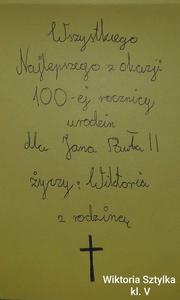 Wszystkiego
Najlepszego z okazji
100-ej rocznicy
urodzin
dla Jana Pawła II
życzy: Wiktoria
z rodziną
Wiktoria Sztylka
kl. V